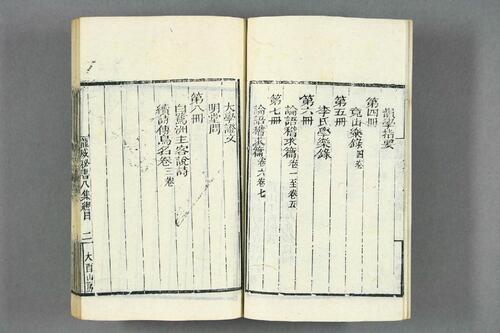 韻學指要
第四冊
竟山樂錄四卷
第五冊
李氏學樂錄
第六冊
論語稽求篇卷一至卷五
第七冊
論語稽求篇卷六卷七
大學證文
明堂問
第八冊
白鷺洲主客說詩
續詩傳鳥名卷三卷
龍威秘書八集總目 二 大酉山房